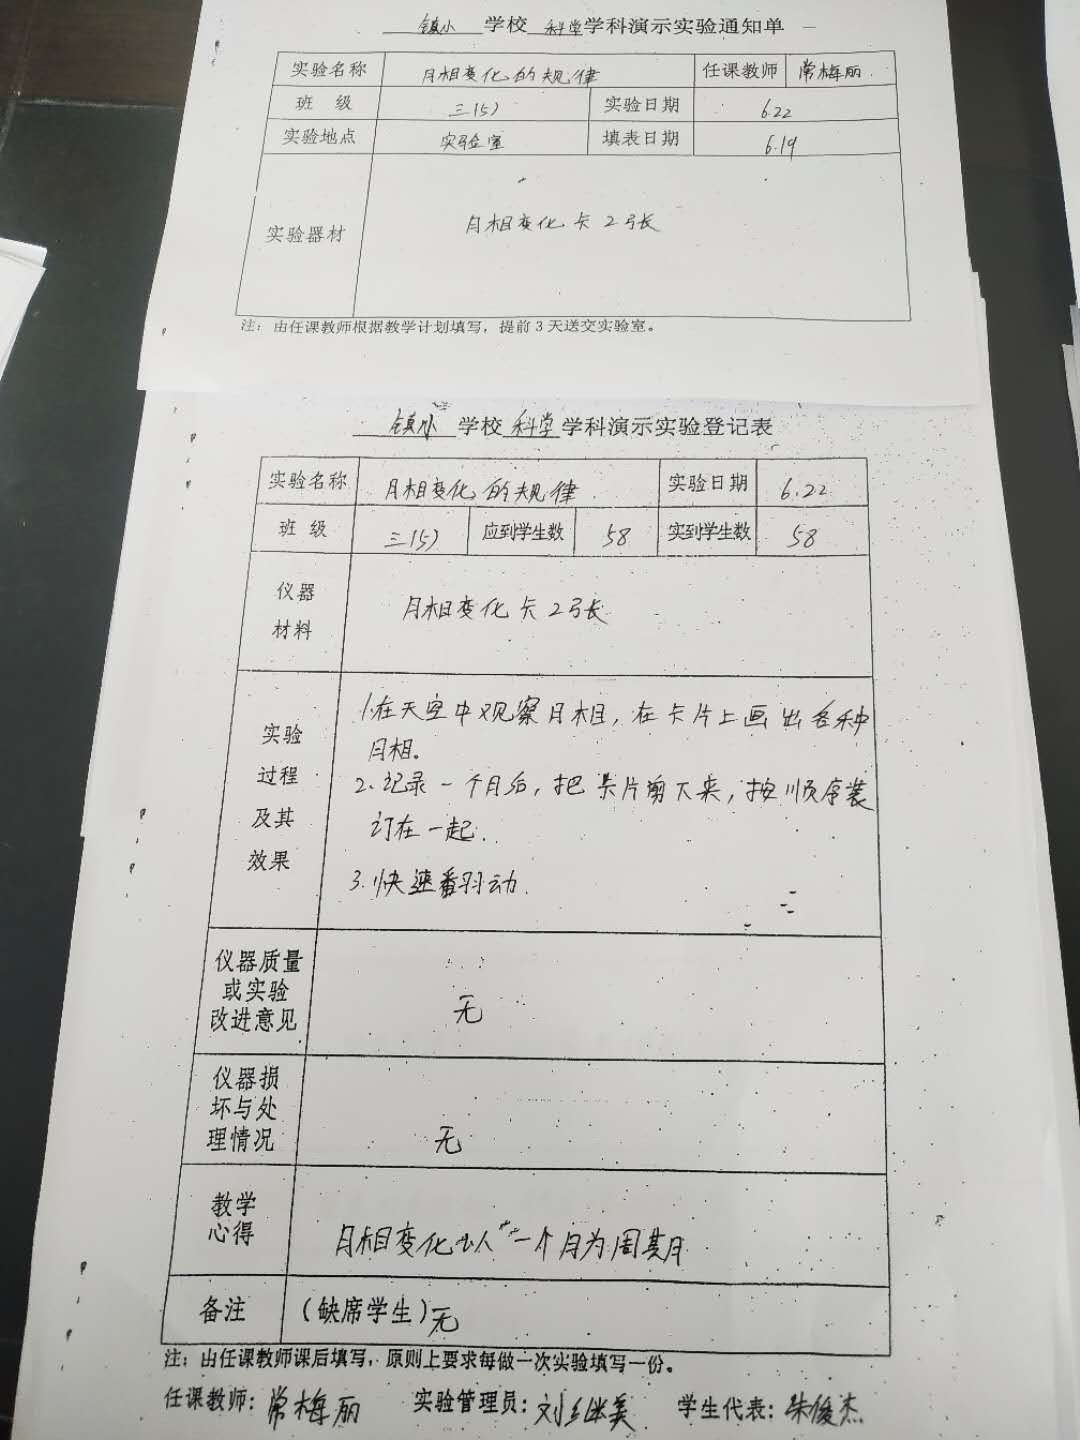 镇小 学校 科学 学科演示实验通知单
实验名称 月相变化的规律 任课教师 常梅丽
班 级 三(5) 实验日期 6.22
实验地点 实验室 填表日期 6.19
实验器材 月相变化卡2张
注：由任课教师根据教学计划填写，提前3天送交实验室。
镇小 学校 科学 学科演示实验登记表
实验名称 月相变化的规律 实验日期 6.22
班 级 三(5) 应到学生数 58 实到学生数 58
仪器
材料
月相变化卡2张
实验
过程
及其
效果
1.在天空中观察月相，在卡片上画出各种
月相。
2.记录一个月后，把卡片剪下来，按顺序装
订在一起.
3.快速翻动.
仪器质量
或实验
改进意见
无
仪器损
坏与处
理情况
无
教学
心得
月相变化以一个月为周期
备注 (缺席学生)无
注：由任课教师课后填写，原则上要求每做一次实验填写一份。
任课教师：常梅丽 实验管理员：刘继美 学生代表：朱俊杰